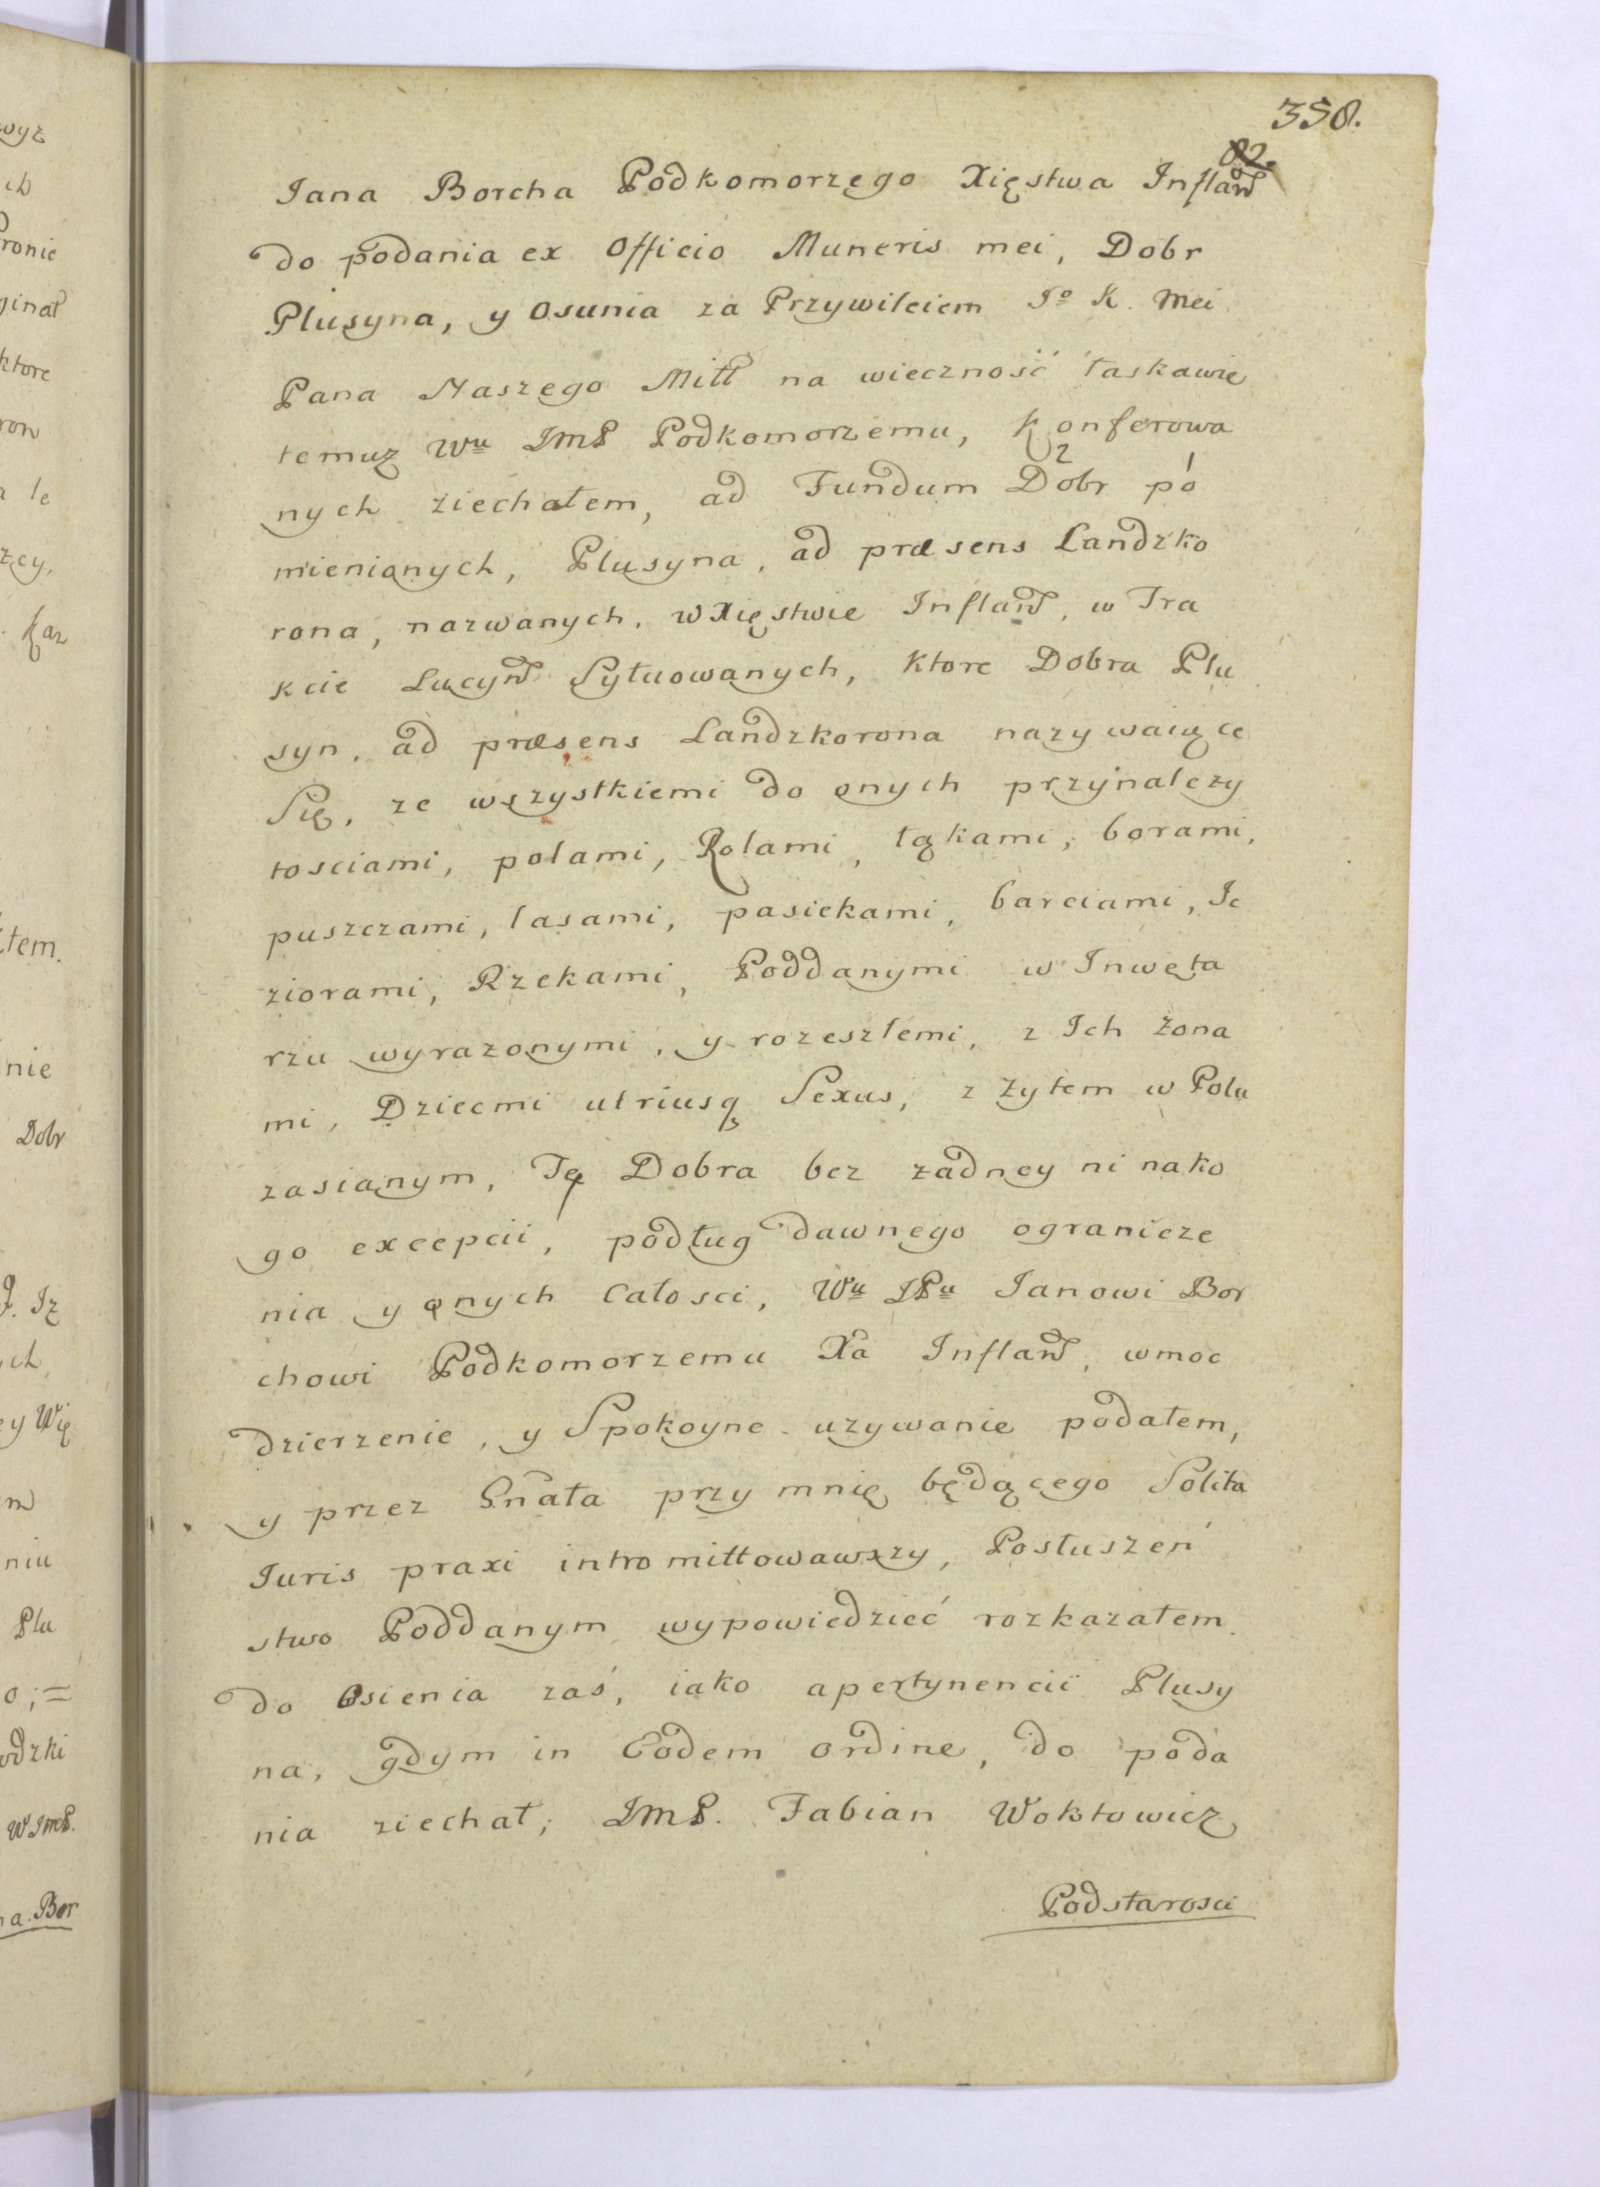 358.
82.
Jana Borcha Podkomorzego Xięstwa Inflan
do podania ex Officio Muneris mei, Dobr
Plusyna, y Osunia za Przywileiem Jº K. Mei
Pana Naszego Mitt na wieczność łaskawie
temuz Wu JMP Podkomorzemu, konferowa
nych ziechałem, ad Fundum Dobr po
2 1
mienionych, Plusyna, ad præsens Landzko
rona, nazwanych, w Xięstwie Inflan, w Tra
kcie Lucyn Sytuowanych, Ktore Dobra Plu
syn, ad præsens Landzkorona nazywaiące
Się, ze wszystkiemi do onych przynalezy
tosciami, polami, Rolami, łąkami, borami,
puszczami, lasami, pasiekami, barciami, Je
ziorami, Rzekami, Poddanymi w Inweta
rzu wyrazonymi, y rozeszłemi, z Ich żona
mi, Dziecmi utriusq Sexus, z żytem w Polu
zasianym, Te Dobra bez żadney ni nako
go excepcii, podług dawnego ogranicze
nia y onych Całosci, Wu JPu Janowi Bor
chowi Podkomorzemu Xa Inflan, w moc
dzierzenie, y Spokoyne uzywanie podałem,
y przez Gnała przy mnie będącego Solita
Juris praxi intromittowawszy, Posłuszeń
stwo Poddanym wypowiedzieć rozkazałem.
do Osienia zaś, iako apertynencii Plusy
na, gdym in Eodem ordine, do poda
nia ziechał; JMP. Fabian Woktowicz
Podstarosci